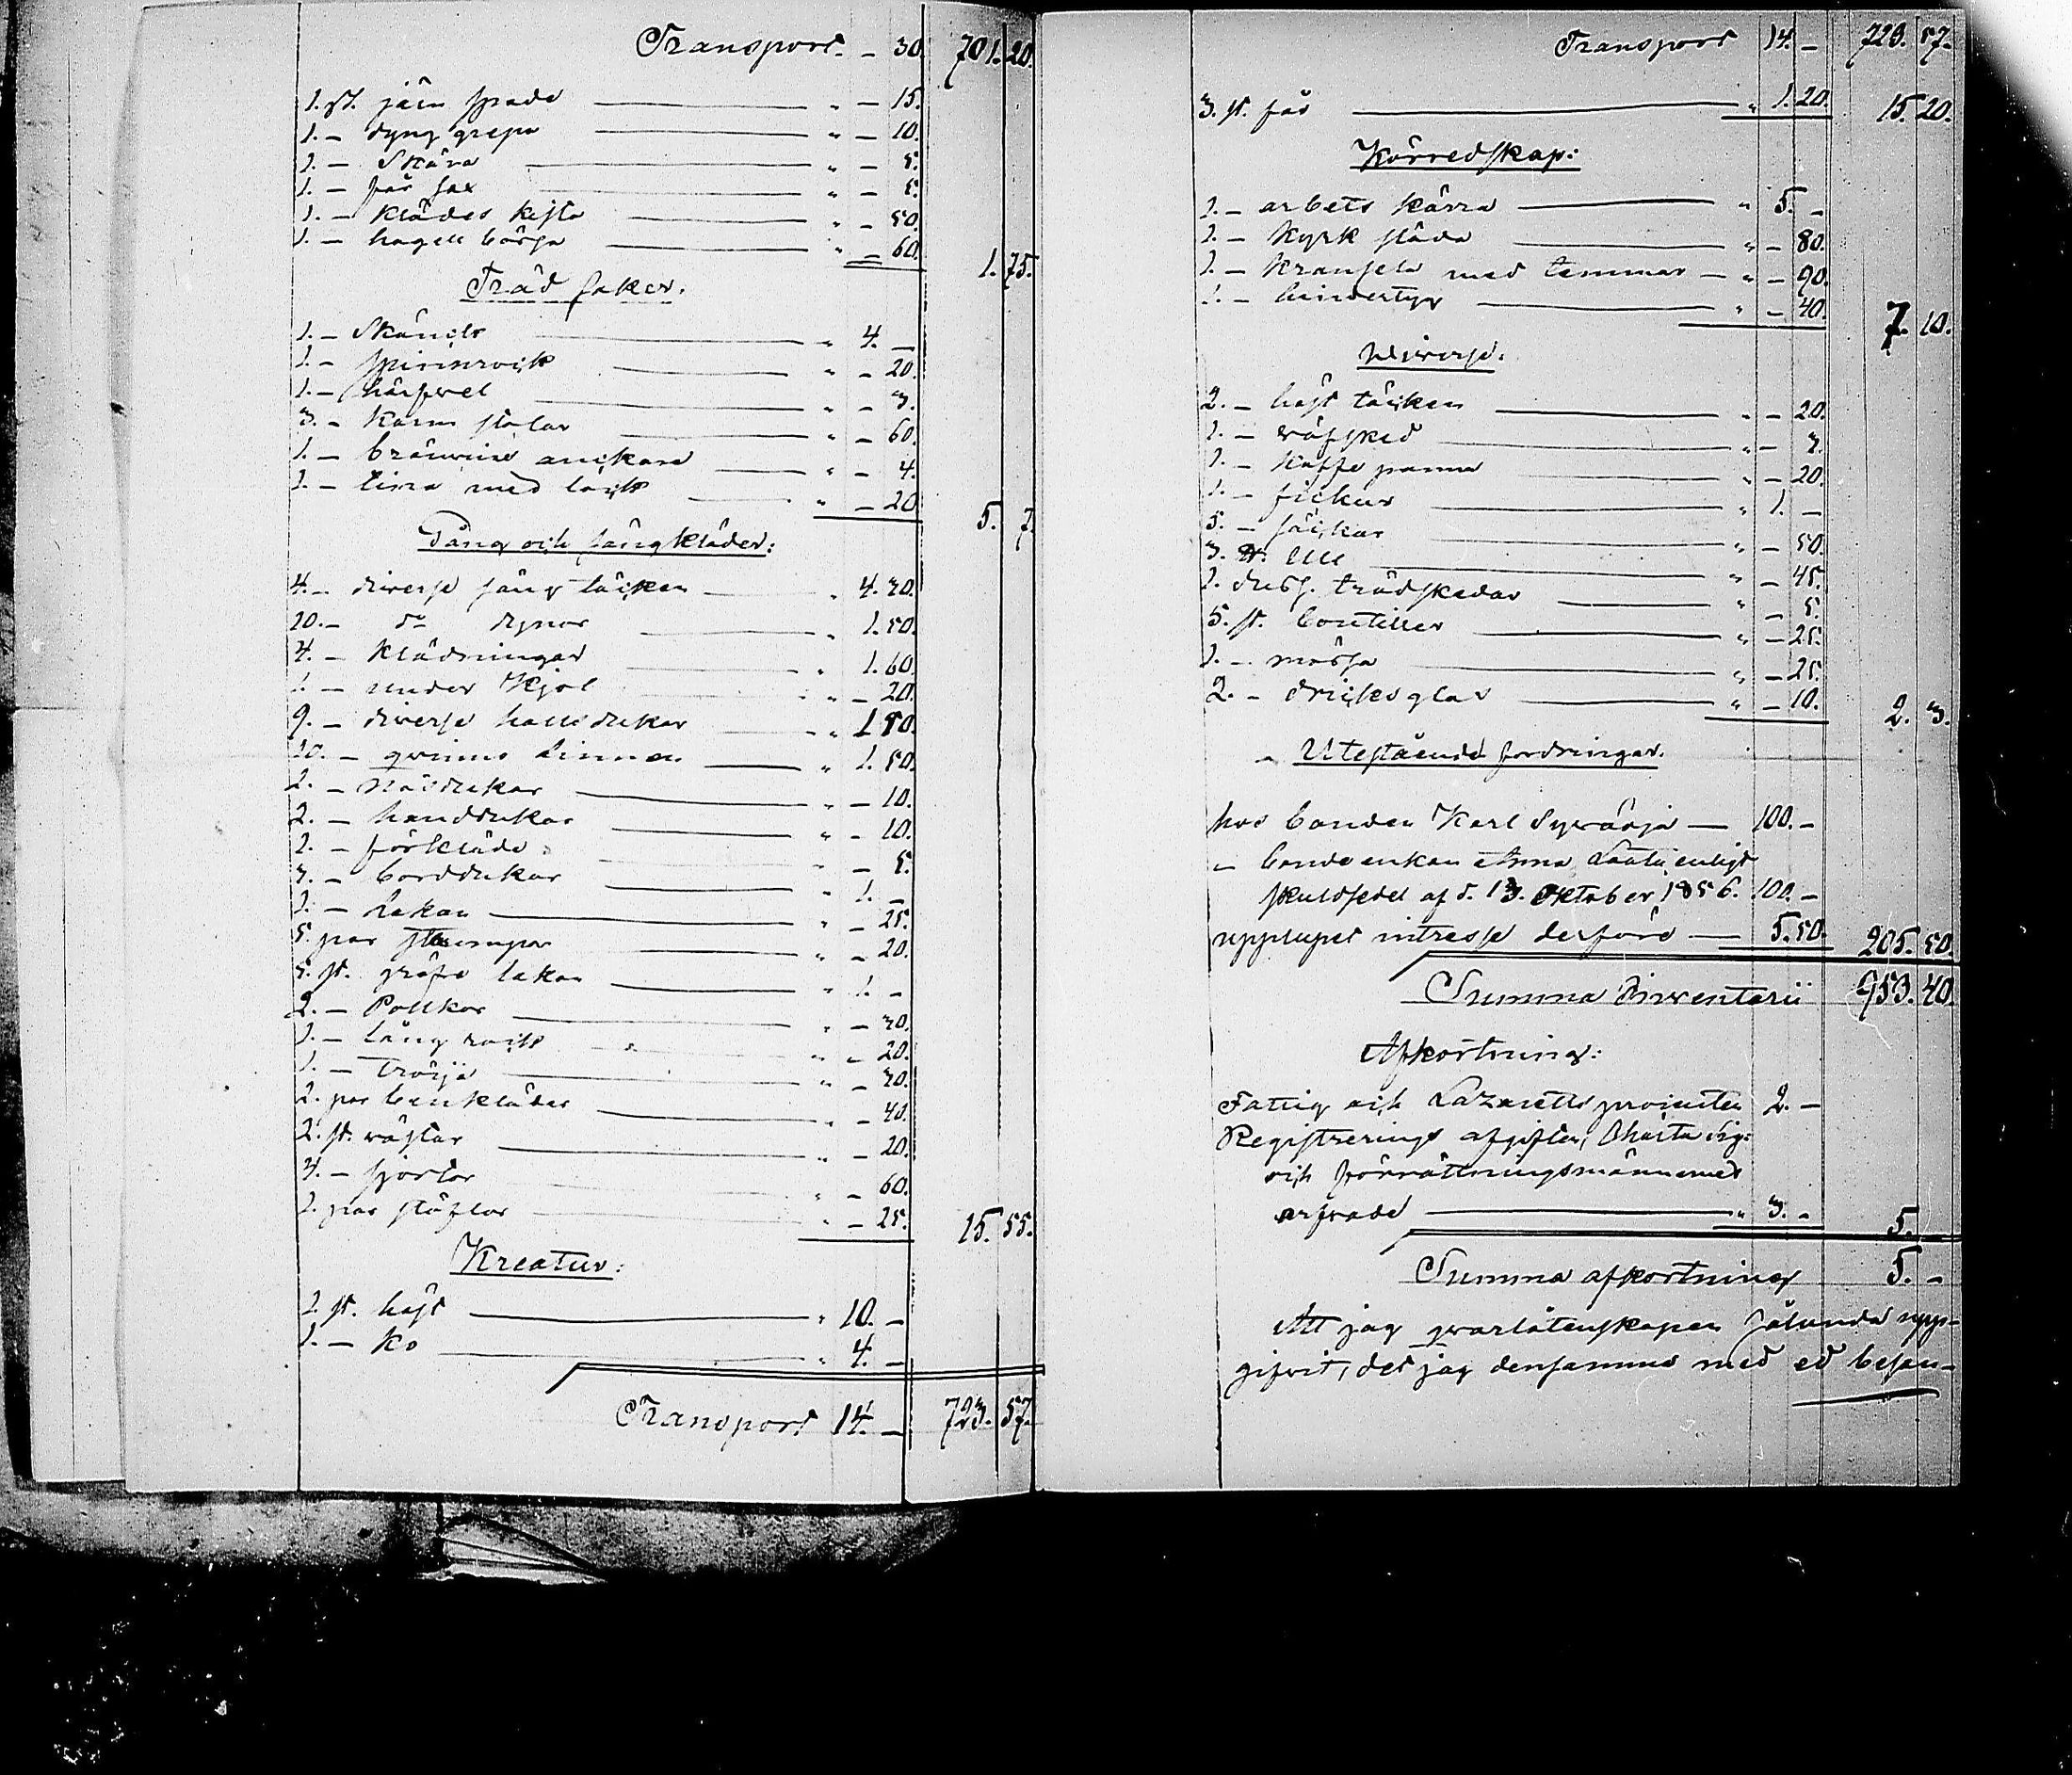 Transport — 30. 701. 20.
1. st. järn spade " — 15.
1. — dyng grepa " — 10.
1. — Skära " — 5.
1. — får sax " — 5.
1. — klädes kista " — 50.
1. — hagell börsa " — 60. 1. 75.
Träd saker.
1. — Skänck " 4. —
1. — spinnrock " — 20.
1. — härfvel " — 3.
3. — karm stolar " — 60.
1. — bränwins anckare " — 4.
1. — tina med lock " — 20. 5. 7.
Säng och sängkläder:
4. — diverse säng täcken " 4. 20.
10. — do dynor " 1. 50.
4. — klädningar " 1. 60.
1. — under kjol " — 20.
9. — diverse halls dukar " 1. 50.
10. — qvinns linnen " 1. 50.
2. — näsdukar " — 10.
2. — handdukar " — 10.
2. — förkläde " — 5.
3. — borddukar " 1. —
1. — Lakan " — 25.
5. par strumpor " — 20.
5. st. gröfre lakan " 1. —
2. — Polkor " — 30.
1. — lång rock " — 20.
1. — tröija " — 20.
2. par benkläder " — 40.
2. st. wästar " — 20.
4. — skjortor " — 60.
1. par stöflar " — 25. 15. 55.
Kreatur:
1. st. häst " 10. —
1. — ko " 4. —
Transport 14. — 723. 57.
Transport 14. — 723. 57.
3. st. får " 1. 20. 15. 20.
Körredskap:
1. — arbets kärra " 5. —
1. — kyrk släda " — 80.
1. — Kransela med tömmar " — 90.
1. — hindertyg " — 40. 7. 10.
Diverse.
2. — häst täcken " — 20.
1. — wäfsked " — 3.
1. — kaffe panna " — 20.
1. — fickur " 1. —
5. — säckar " — 50.
3. ℔. Ull " — 45.
1. duss. trädskedar " — 5.
5. st. bouteller " — 25.
1. — mössa " — 25.
2. — dricksglas " — 10. 2. 3.
Utestående fordringar.
hos bonden Karl Sywärja — 100. —
" bondeenkan Anna enligt
skuldsedel af d. 13. Oktober 1856. 100. —
upplupet intresse derföre — 5. 50. 205. 50.
Summa Inventarii 953. 40.
Afkortning:
Fattig och Lazaretts procenten 2. —
Registrerings afgiften, Charta Sig:
och förrättningsmännernes
arfvode " 3. — 5.
Summa afkortning 5. —
Att jag qvarlåtenskapen sålunda upp-
gifvit, det jag densamma med ed besan-